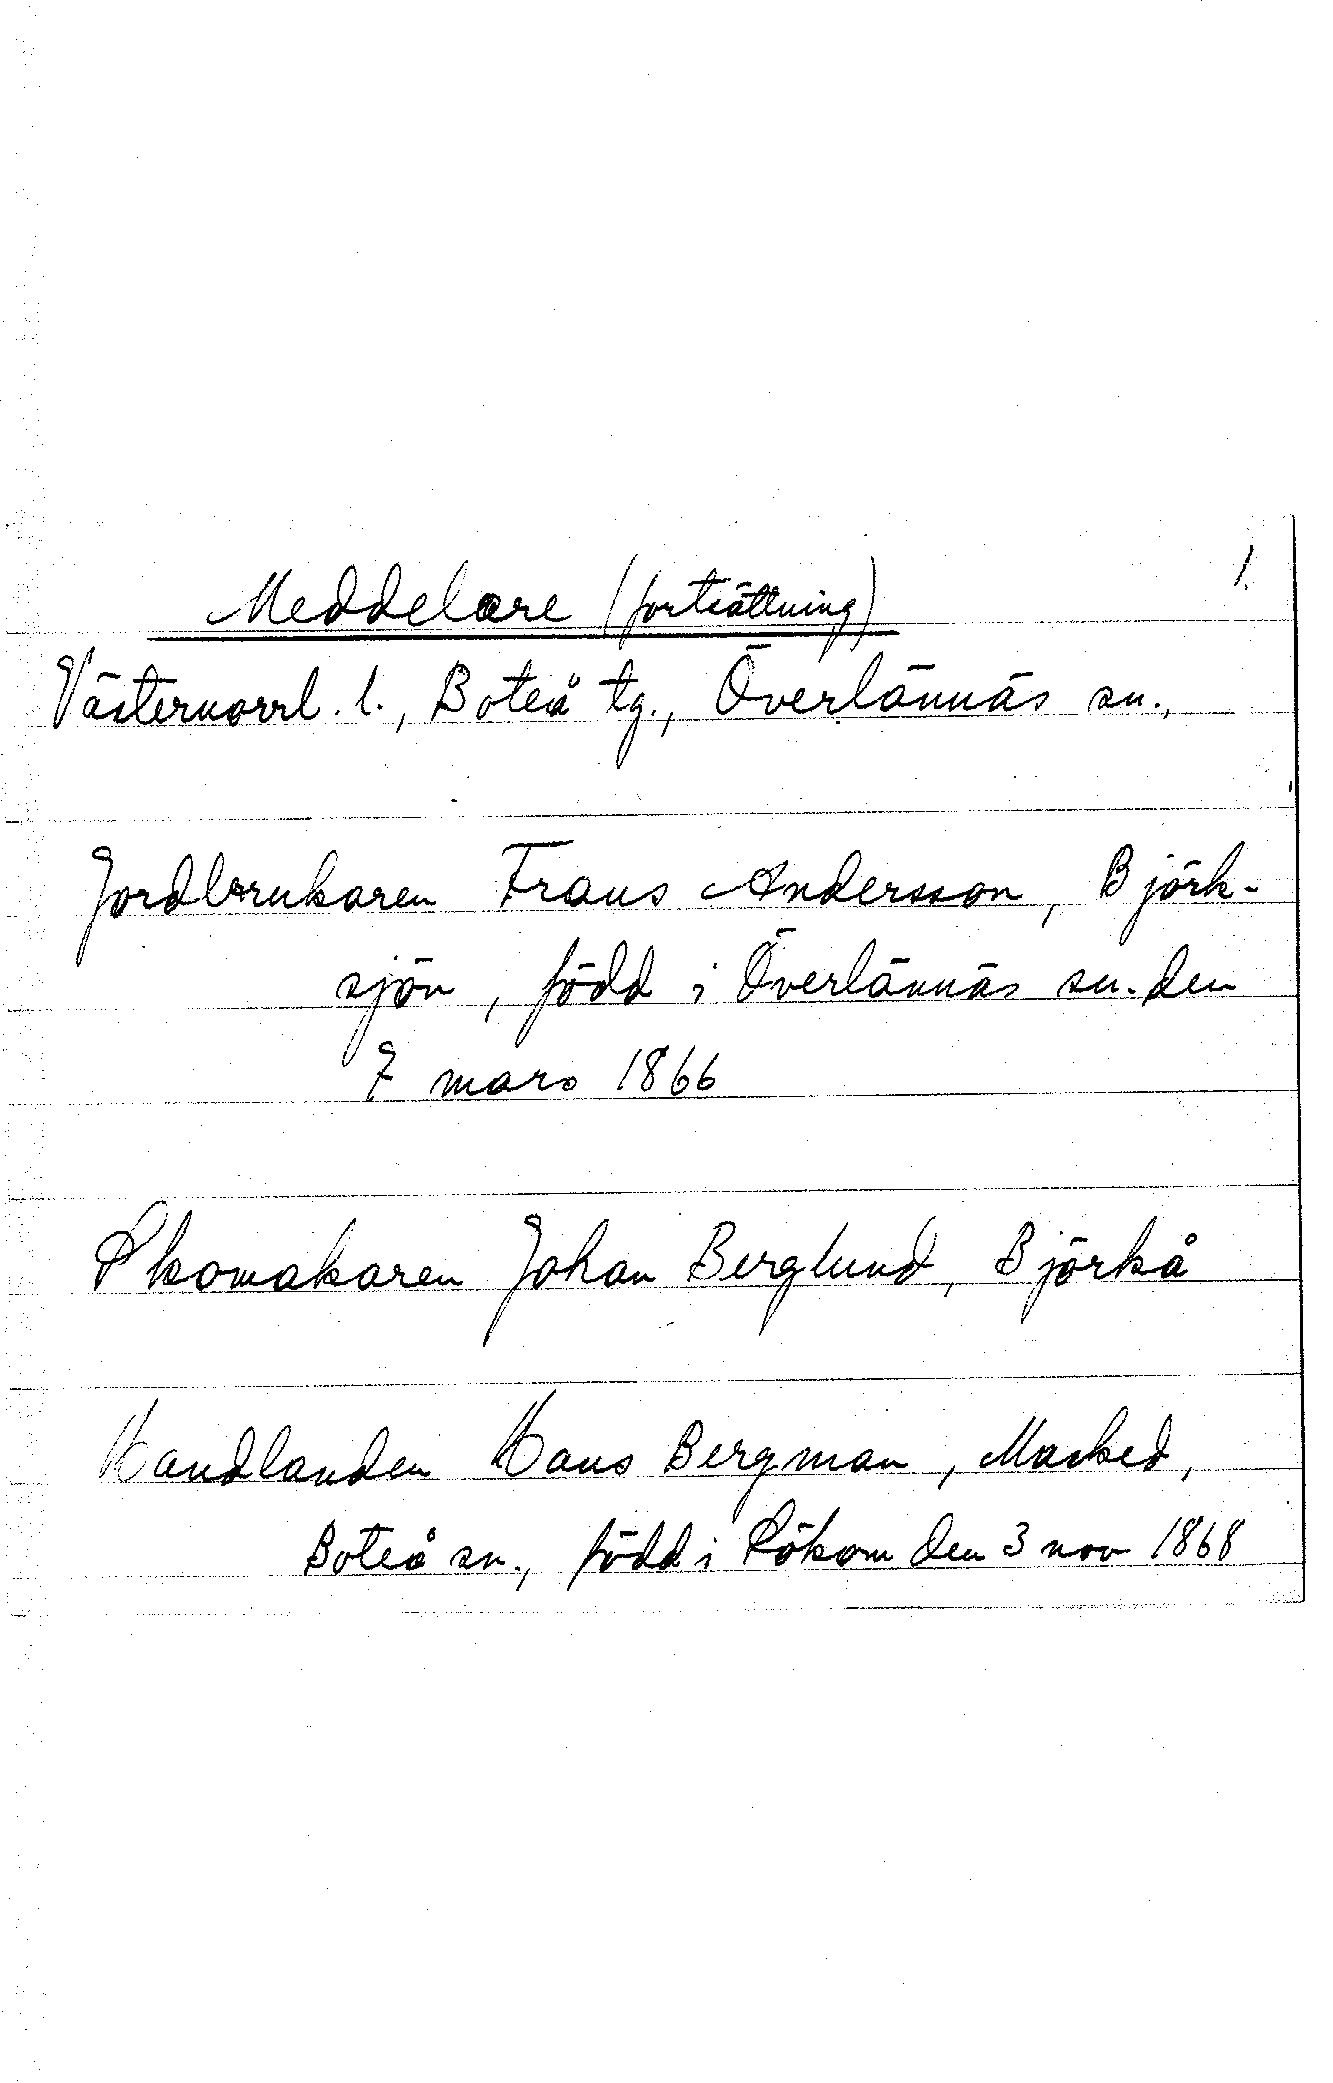 1.
Meddelare (fortsättning)
Västernorrl. l., Boteå tg., Överlännäs sn.,
Jordbrukaren Frans Andersson, Björk-
sjön, född i Överlännäs sn. den
7 mars 1866
Skomakaren Johan Berglund, Björkå
Handlanden Hans Bergman, Marked,
Boteå sn., född i Rökom den 3 nov 1868